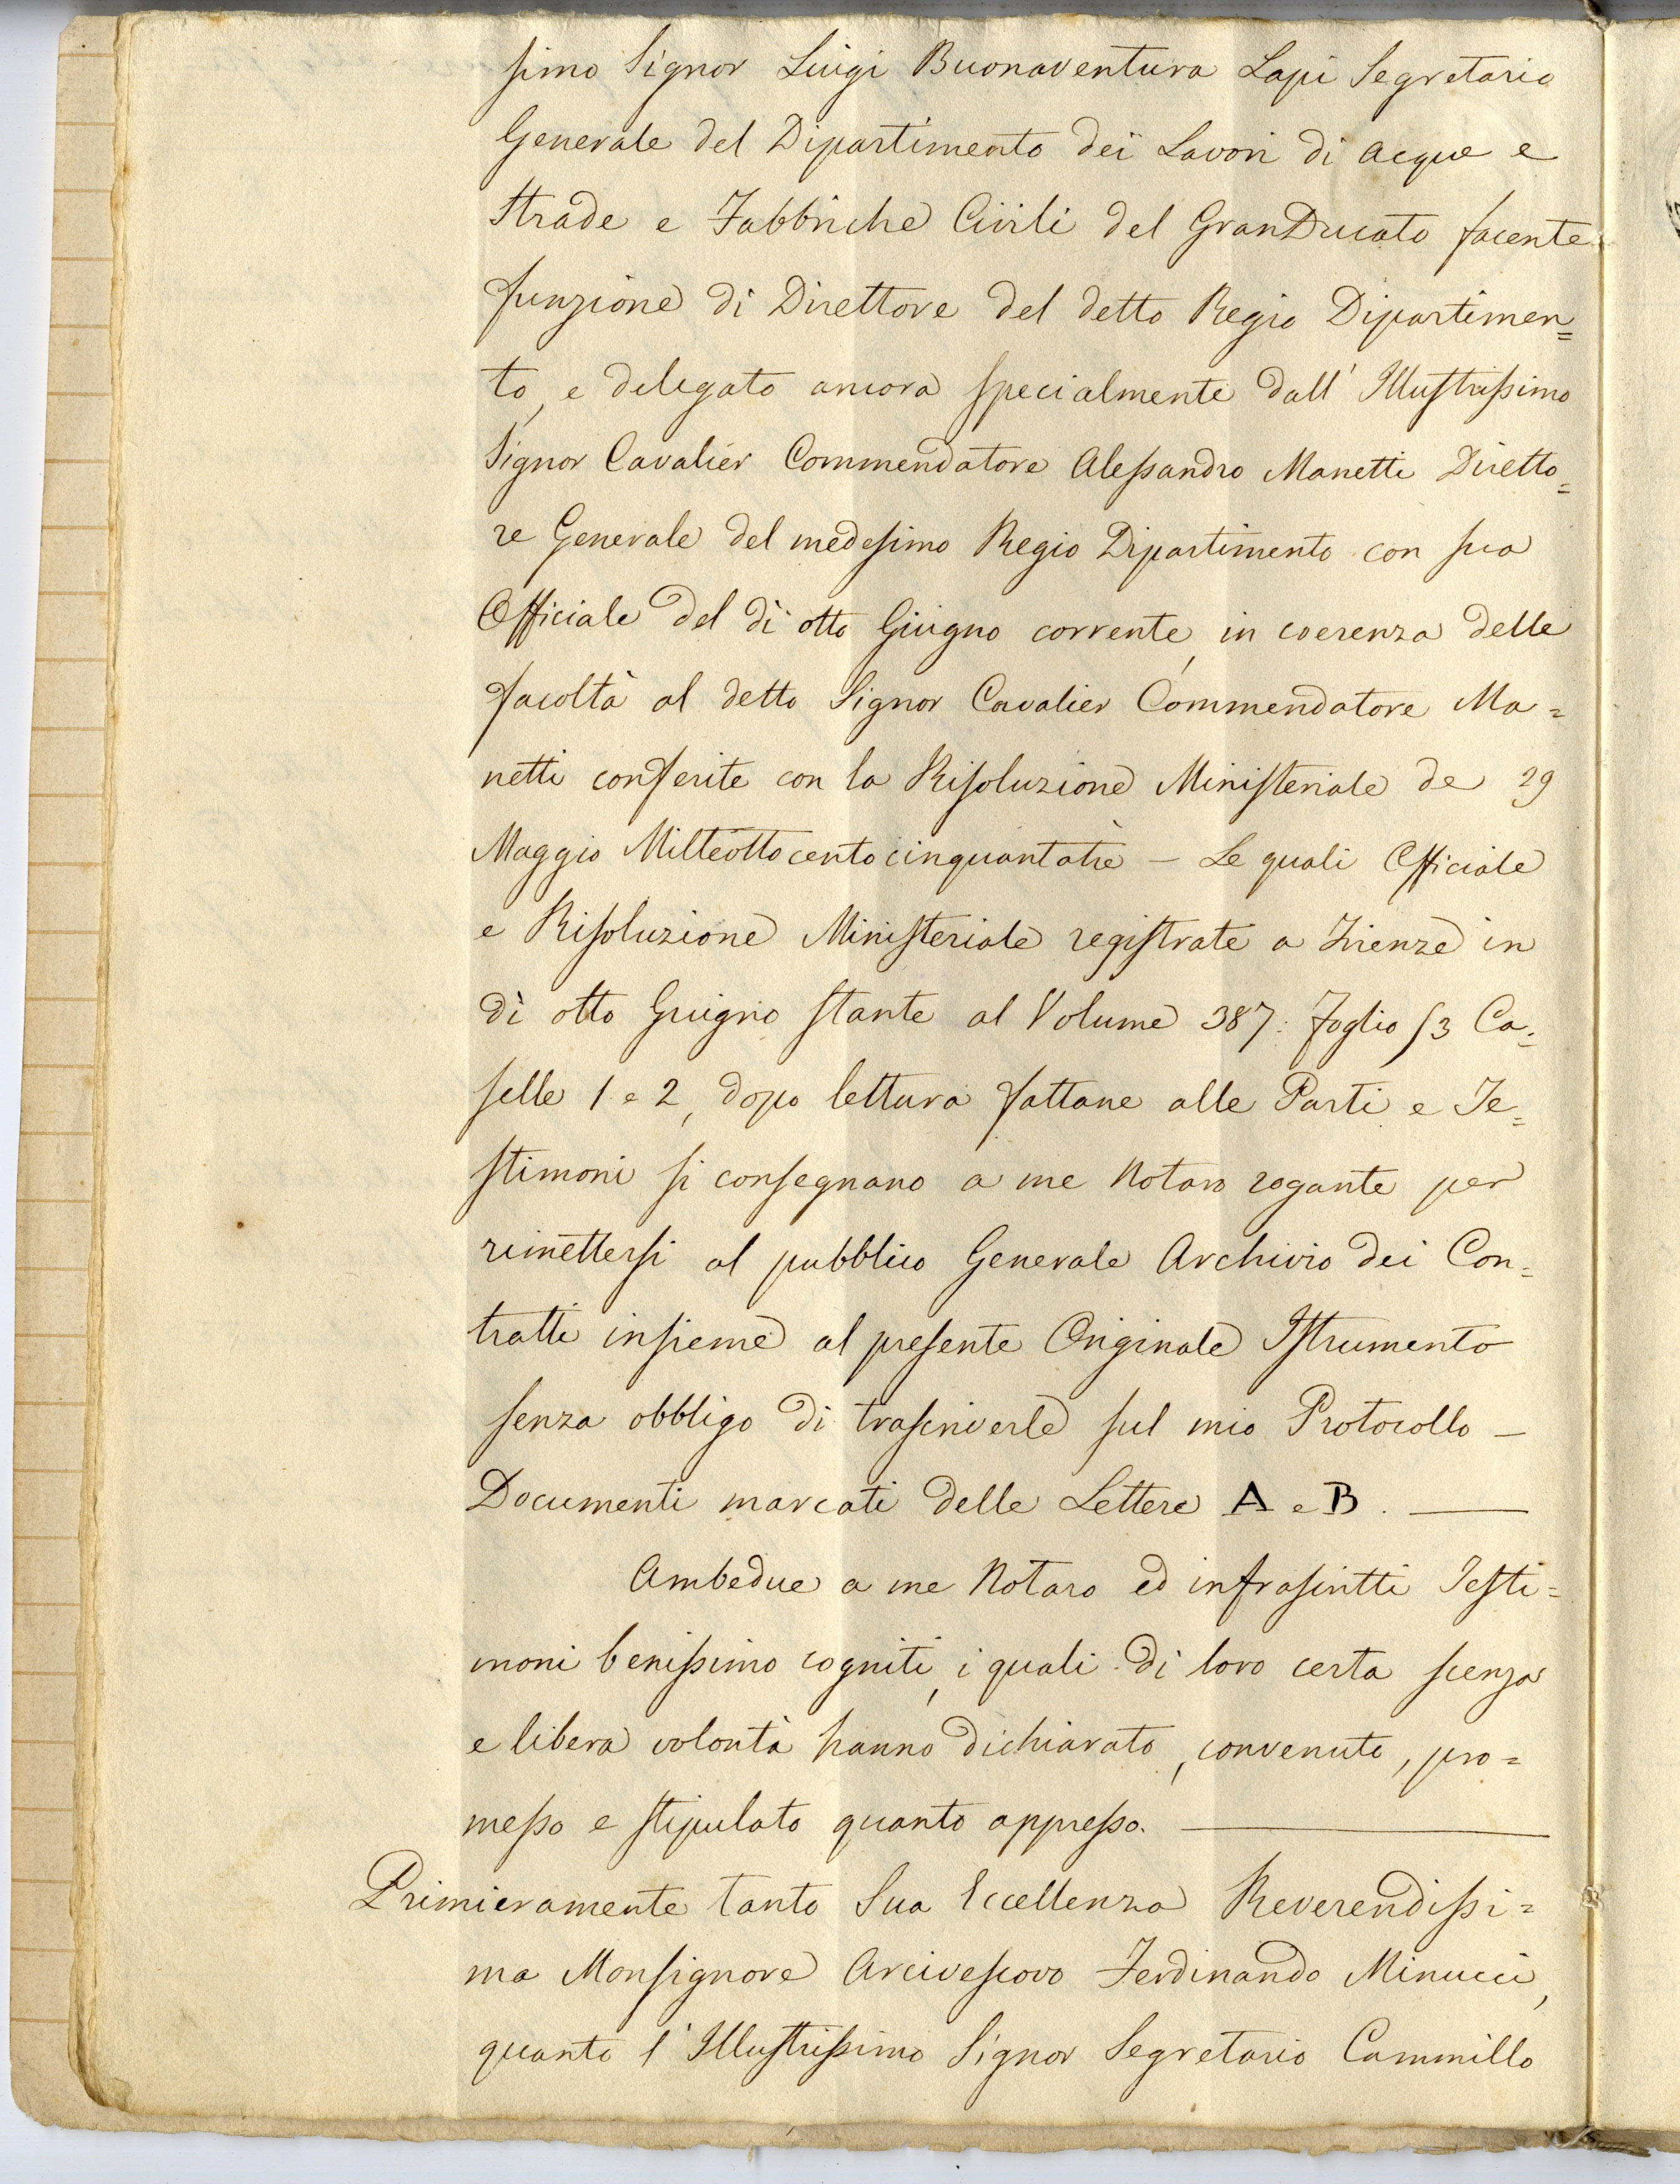 simo Signor Luigi Buonaventura Lapi Segretario
Generale del Dipartimento dei Lavori di Acque e
Strade e Fabbriche Civili del GranDucato facente
funzione di Direttore del detto Regio Dipartimen=
to, e delegato ancora specialmente dall' Illustrissimo
Signor Cavalier Commendatore Alessandro Manetti Diretto=
re Generale del medesimo Regio Dipartimento con sua
Officiale del dì otto Giugno corrente, in coerenza delle
facoltà al detto Signor Cavalier Commendatore Ma=
netti conferite con la Risoluzione Ministeriale de 29
Maggio Milleottocentocinquantatrè — Le quali Officiale
e Risoluzione Ministeriale registrate a Firenze in
dì otto Giugno stante al Volume 387: Foglio 53 Ca=
selle 1 e 2, dopo lettura fattane alle Parti e Te=
stimoni si consegnano a me Notaro rogante per
rimettersi al pubblico Generale Archivio dei Con=
tratti insieme al presente Originale Istrumento
senza obbligo di trascriverle sul mio Protocollo —
Documenti marcati delle Lettere A e B. —
Ambedue a me Notaro ed infrascritti Testi=
moni benissimo cogniti, i quali di loro certa scenza
e libera volontà hanno dichiarato, convenuto, pro=
messo e stipulato quanto appresso. —
Primieramente tanto Sua Eccellenza Reverendissi=
ma Monsignore Arcivescovo Ferdinando Minucci,
quanto l'Illustrissimo Signor Segretario Cammillo